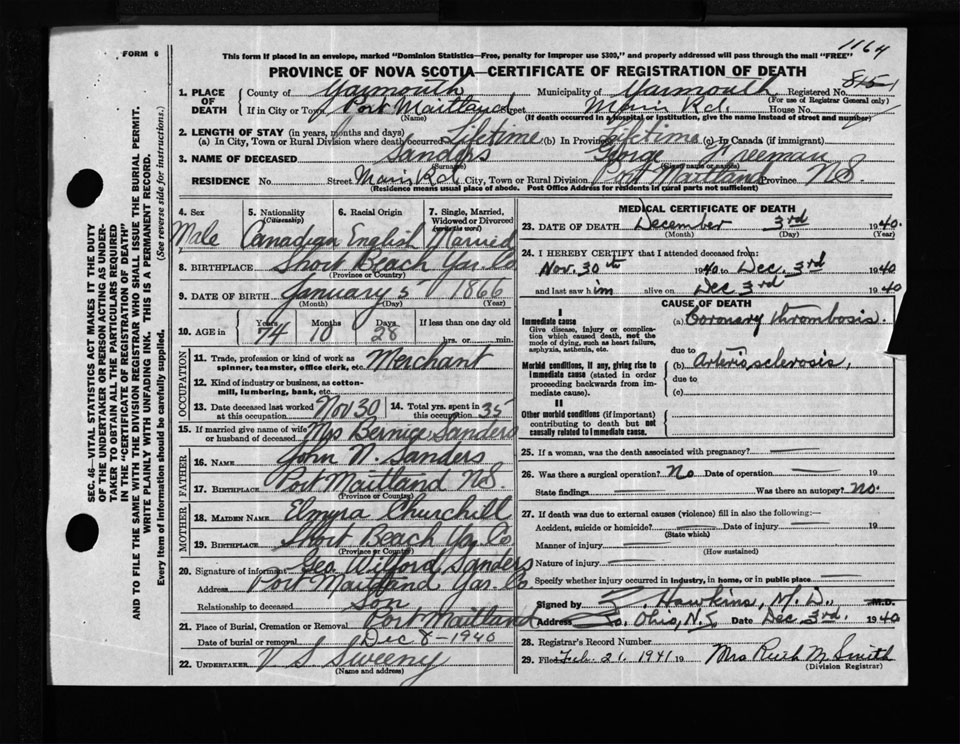 1164
FORM 6
This form if placed in an envelope, marked "Dominion Statistics—Free, penalty for improper use $300," and properly addressed will pass through the mail "FREE"
PROVINCE OF NOVA SCOTIA—CERTIFICATE OF REGISTRATION OF DEATH
1. PLACE OF DEATH
County of Yarmouth Municipality of Yarmouth Registered No.
(For use of Registrar General only)
If in City or Town Port Maitland Street Main Rd. House No.
(Name) (If death occurred in a hospital or institution, give the name instead of street and number)
2. LENGTH OF STAY (in years, months and days)
(a) In City, Town or Rural Division where death occurred Lifetime (b) In Province Lifetime (c) In Canada (if immigrant)
3. NAME OF DECEASED Sanders George Freeman
(Surname)
RESIDENCE No. Street Main Rd City, Town or Rural Division Port Maitland Province N.S.
(Residence means usual place of abode. Post Office Address for residents in rural parts not sufficient)
4. Sex Male
5. Nationality (Citizenship) Canadian
6. Racial Origin English
7. Single, Married, Widowed or Divorced (write the word) Married
8. BIRTHPLACE Short Beach Yar. Co
(Province or Country)
9. DATE OF BIRTH January 5 1866
(Month) (Day) (Year)
10. AGE in Years 74 Months 10 Days 28 If less than one day old
hrs. or min.
OCCUPATION
11. Trade, profession or kind of work as spinner, teamster, office clerk, etc. Merchant
12. Kind of industry or business, as cotton-mill, lumbering, bank, etc.
13. Date deceased last worked at this occupation Nov 30
14. Total yrs. spent in this occupation 35
15. If married give name of wife or husband of deceased Mrs Bernice Sanders
FATHER
16. NAME John N. Sanders
17. BIRTHPLACE Port Maitland N.S.
(Province or Country)
MOTHER
18. MAIDEN NAME Elmyra Churchill
19. BIRTHPLACE Short Beach Yar. Co
(Province or Country)
20. Signature of informant Geo Wilford Sanders
Address Port Maitland Yar. Co
Relationship to deceased Son
21. Place of Burial, Cremation or Removal Port Maitland
Date of burial or removal Dec 8 - 1940
22. UNDERTAKER V S Sweeny
(Name and address)
MEDICAL CERTIFICATE OF DEATH
23. DATE OF DEATH December 3rd 1940.
(Month) (Day) (Year)
24. I HEREBY CERTIFY that I attended deceased from:
Nov. 30th 1940 to Dec. 3rd 1940
and last saw him alive on Dec 3rd 1940
CAUSE OF DEATH
I
Immediate cause (a) Coronary thrombosis.
Give disease, injury or complication which caused death, not the mode of dying, such as heart failure, asphyxia, asthenia, etc.
due to
Morbid conditions, if any, giving rise to immediate cause (stated in order proceeding backwards from immediate cause).
(b) Arteriosclerosis,
due to
(c)
II
Other morbid conditions (if important) contributing to death but not causally related to immediate cause.
25. If a woman, was the death associated with pregnancy?
26. Was there a surgical operation? No Date of operation 19
State findings Was there an autopsy? No.
27. If death was due to external causes (violence) fill in also the following:—
Accident, suicide or homicide? Date of injury 19
(State which)
Manner of injury
(How sustained)
Nature of injury
Specify whether injury occurred in industry, in home, or in public place
Signed by Hawkins, M.D. M.D.
Address So. Ohio, N.S. Date Dec. 3rd. 1940
28. Registrar's Record Number
29. Filed Feb. 21, 1941 19 Mrs Ruth M. Smith
(Division Registrar)
SEC. 46—VITAL STATISTICS ACT MAKES IT THE DUTY
OF THE UNDERTAKER OR PERSON ACTING AS UNDERTAKER
TO OBTAIN ALL THE PARTICULARS REQUIRED
IN THE "CERTIFICATE OF REGISTRATION OF DEATH"
AND TO FILE THE SAME WITH THE DIVISION REGISTRAR WHO SHALL ISSUE THE BURIAL PERMIT.
WRITE PLAINLY WITH UNFADING INK. THIS IS A PERMANENT RECORD.
Every item of information should be carefully supplied. (See reverse side for instructions.)